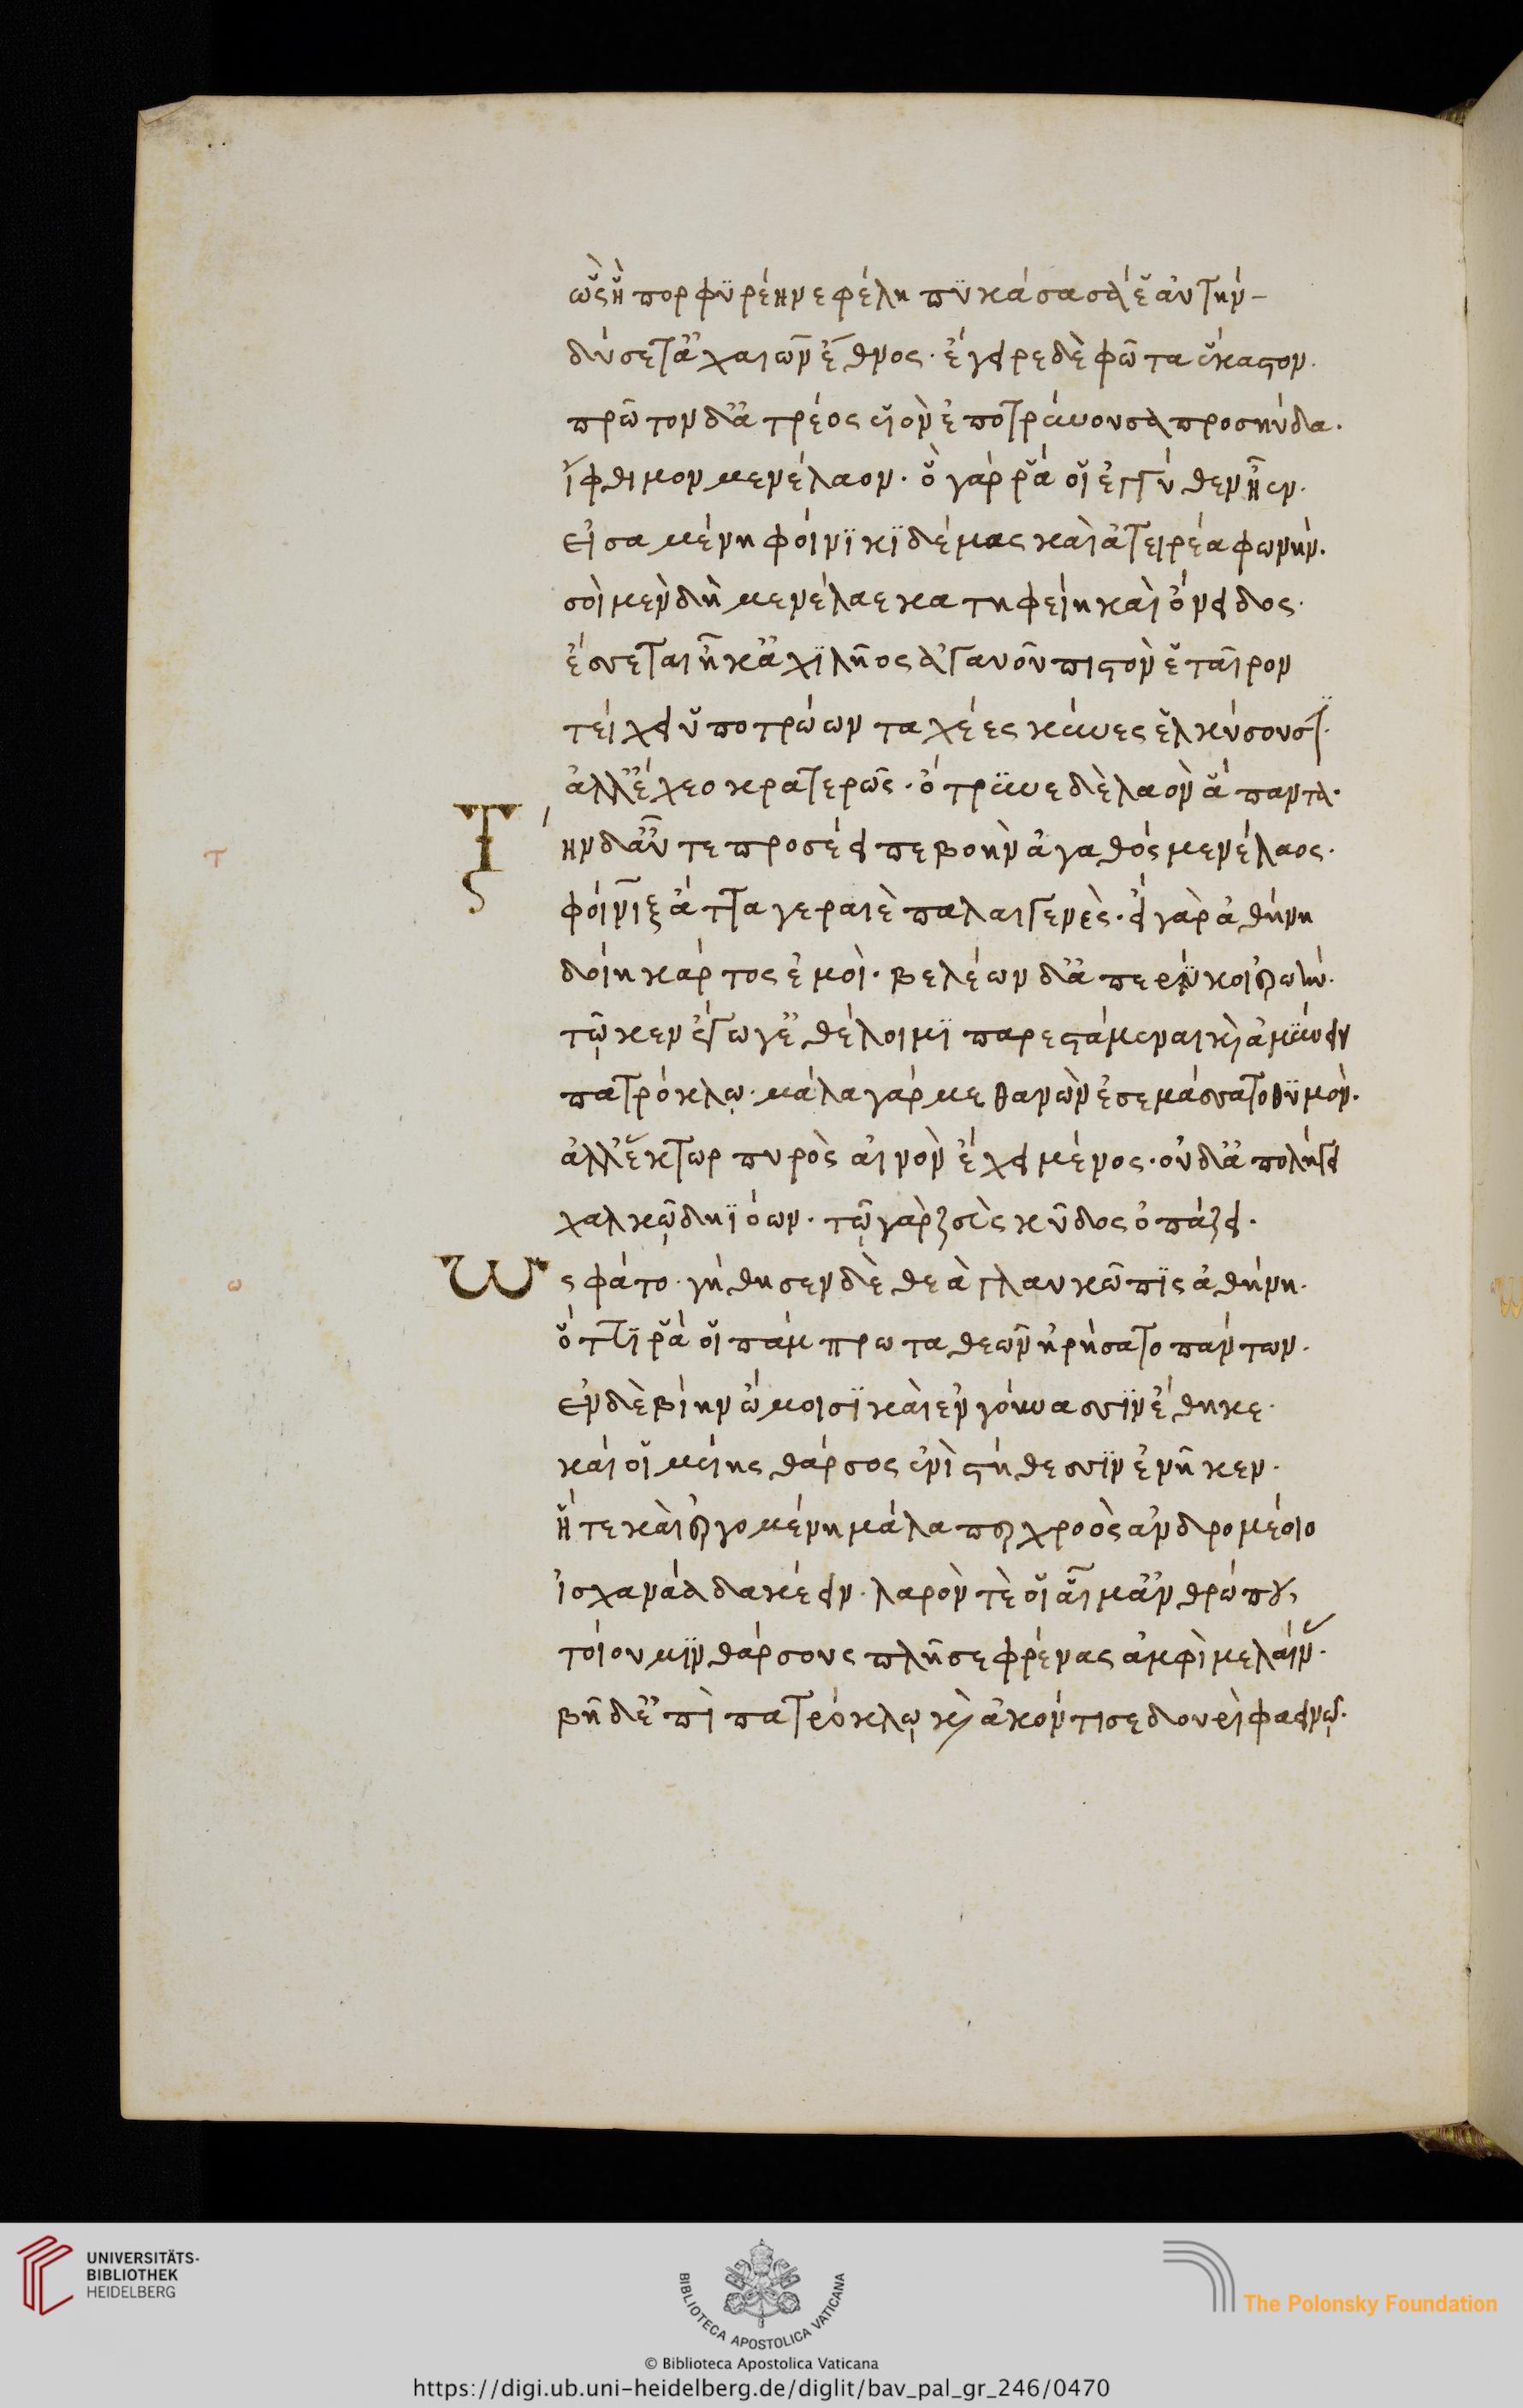 ὣς ἣ πορφυρέη νεφέλη πυκάσασα ἓ αὐτὴν
δύσετ' ἀχαιῶν ἔθνος. ἔγειρε δὲ φῶτα ἕκαστον.
πρῶτον δ' ἀτρέος υἱὸν ἐποτρύνουσα προσηύδα.
ἴφθιμον μενέλαον. ὃ γάρ ῥά οἱ ἐγγύθεν ἦεν.
εἰσαμένη φοίνικι δέμας καὶ ἀτειρέα φωνήν.
σοὶ μὲν δὴ μενέλαε κατηφείη καὶ ὄνειδος.
ἔσσεται ἤν κ' ἀχιλῆος ἀγαυοῦ πιστὸν ἑταῖρον
τείχει ὕπο τρώων ταχέες κύνες ἑλκύσουσι.
ἀλλ' ἔχεο κρατερῶς. ὄτρυνε δὲ λαὸν ἅπαντα.
Τὴν δ' αὖτε προσέειπε βοὴν ἀγαθὸς μενέλαος.
φοῖνιξ ἄττα γεραιὲ παλαιγενὲς. εἰ γὰρ ἀθήνη
δοίη κάρτος ἐμοὶ. βελέων δ' ἀπερύκοι ἐρωήν.
τῷ κεν ἔγωγ' ἐθέλοιμι παρεστάμεναι καὶ ἀμύνειν
πατρόκλῳ. μάλα γάρ με θανὼν ἐσεμάσσατο θυμόν.
ἀλλ' ἕκτωρ πυρὸς αἰνὸν ἔχει μένος. οὐδ' ἀπολήγει
χαλκῷ δηϊόων. τῷ γὰρ ζεὺς κῦδος ὀπάζει.
Ὣς φάτο. γήθησεν δὲ θεὰ γλαυκῶπις ἀθήνη.
ὅττι ῥά οἱ πάμπρωτα θεῶν ἠρήσατο πάντων.
ἐν δὲ βίην ὤμοισι καὶ ἐν γούνασσιν ἔθηκε.
καί οἱ μυίης θάρσος ἐνὶ στήθεσσιν ἐνῆκεν.
ἥ τε καὶ ἐργομένη μάλα περ χροὸς ἀνδρομέοιο
ἰσχανάα δακέειν. λαρόν τέ οἱ αἷμ' ἀνθρώπου,
τοίου μιν θάρσους πλῆσε φρένας ἀμφὶ μελαίνας.
βῆ δ' ἐπὶ πατρόκλῳ καὶ ἀκόντισε δουρὶ φαεινῷ.
τ
ω
UNIVERSITÄTS-
BIBLIOTHEK
HEIDELBERG
BIBLIOTECA APOSTOLICA VATICANA
The Polonsky Foundation
© Biblioteca Apostolica Vaticana
https://digi.ub.uni-heidelberg.de/diglit/bav_pal_gr_246/0470